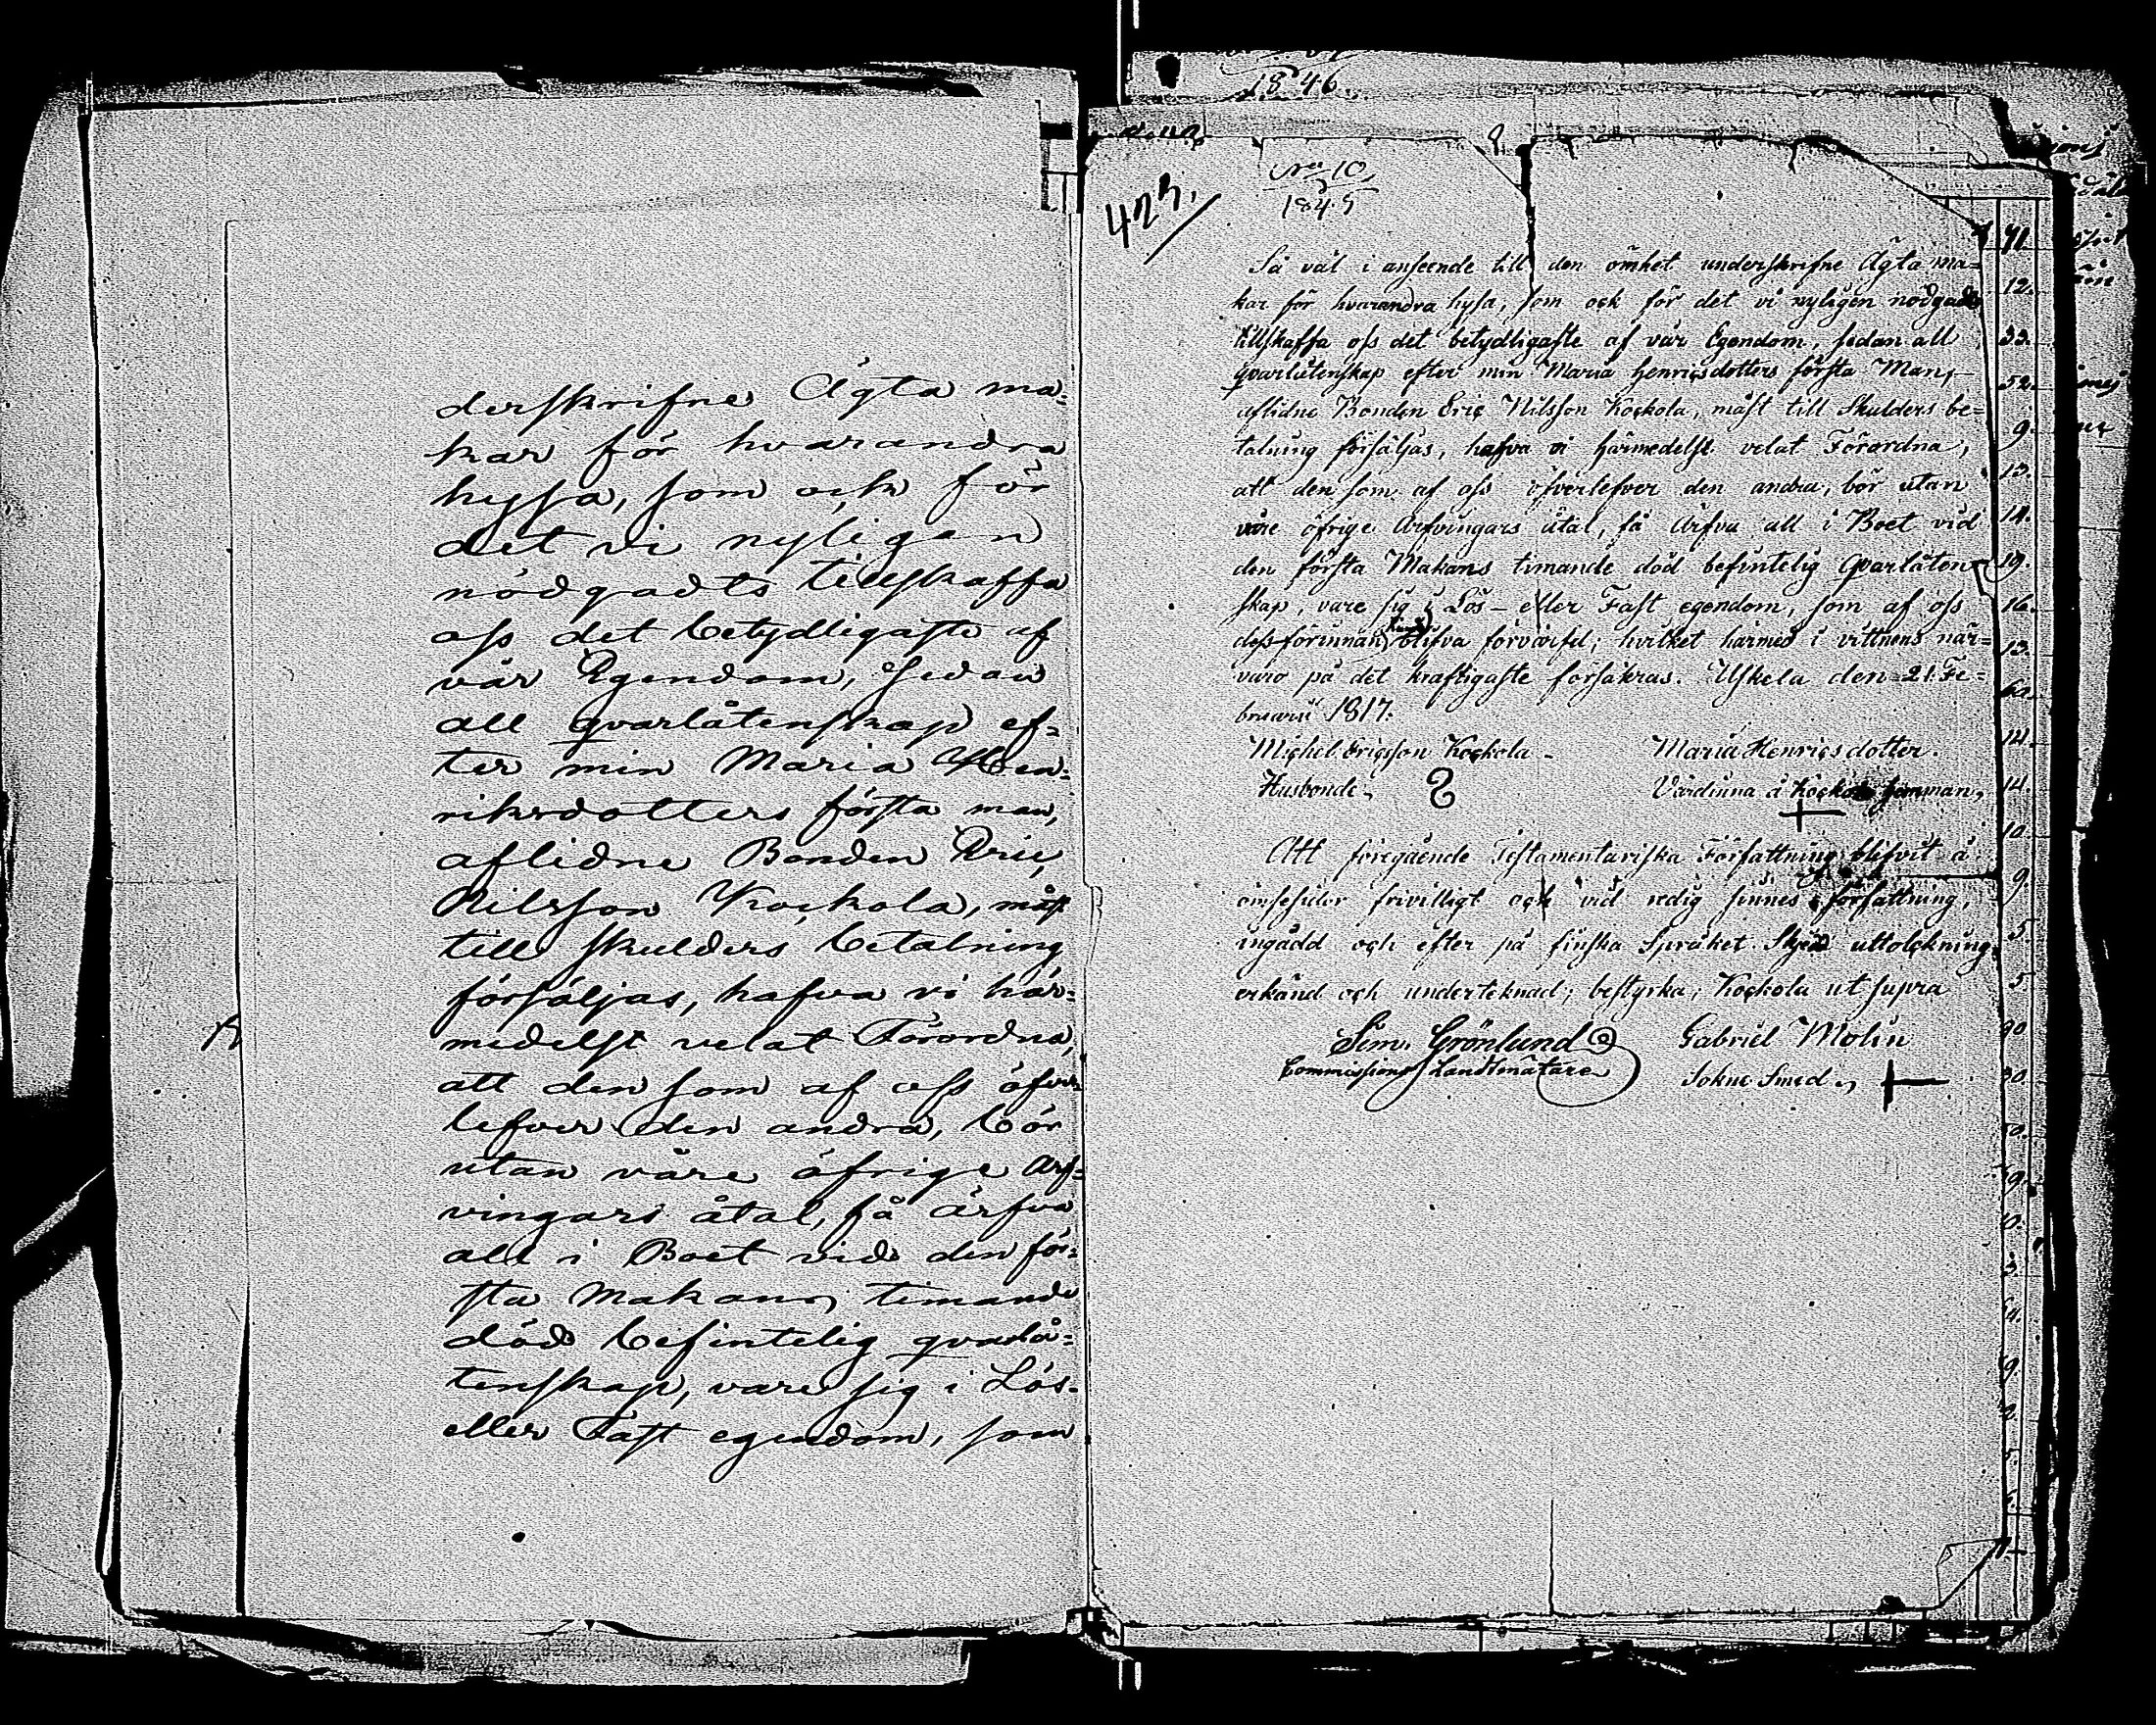 derskrifne Ägta ma-
kar för hvarandra
hysa, som ock för
det vi nyligen
nödgadts tillskaffa
oss det betydligaste af
vår Egendom, sedan
all qvarlåtenskap ef-
ter min Maria Hen-
riksdotters första man,
aflidne Bonden Eric
Nilsson Kockola, måst
till skulders betalning
försäljas, hafva vi här-
medelst velat Förordna,
att den som af oss öfver
lefver den andra, bör
utan våre öfrige Arf-
vingars åtal, få ärfva
all i Boet vid den för-
sta Makans timande
död befintelig qvarlå-
tenskap, vare sig i Lös-
eller Fast egendom, som
1846.
423.
No 10
1845
Så väl i anseende till den ömhet underskrifne Ägta ma-
kar för hvarandra hysa, som ock för det vi nyligen nödgads
tillskaffa oss det betydligaste af vår Egendom, sedan all
qvarlåtenskap efter min Maria Henricsdotters första Man,
aflidne Bonden Eric Nilsson Kockola, måst till Skulders be-
talning försäljas, hafva vi härmedelst velat Förordna,
att den som af oss öfverlefver den andra, bör utan
våre öfrige Arfvingars åtal, få ärfva all i Boet vid
den första Makans timande död befintelig qvarlåten-
skap, vare sig i Lös- eller Fast egendom, som af oss
dessförinnan blifva förvärfd; hvilket härmed i vittnens när-
varo på det kraftigaste försäkras. Uskela den 21 Fe-
bruarii 1817.
Michel Ericsson Kockola Maria Henricsdotter.
Husbonde Värdinna å Kockola hemman,
Att föregående Testamentariska Författning blifvit å
ömsesidor frivilligt och vid redig sinnes författning,
ingådd och efter på finska Språket Skjedd uttolckning
erkänd och underteknad; bestyrka; Kockola ut supra
Sim. Grönlund Gabriel Molin
Commissions Landtmätare Sokne Smed